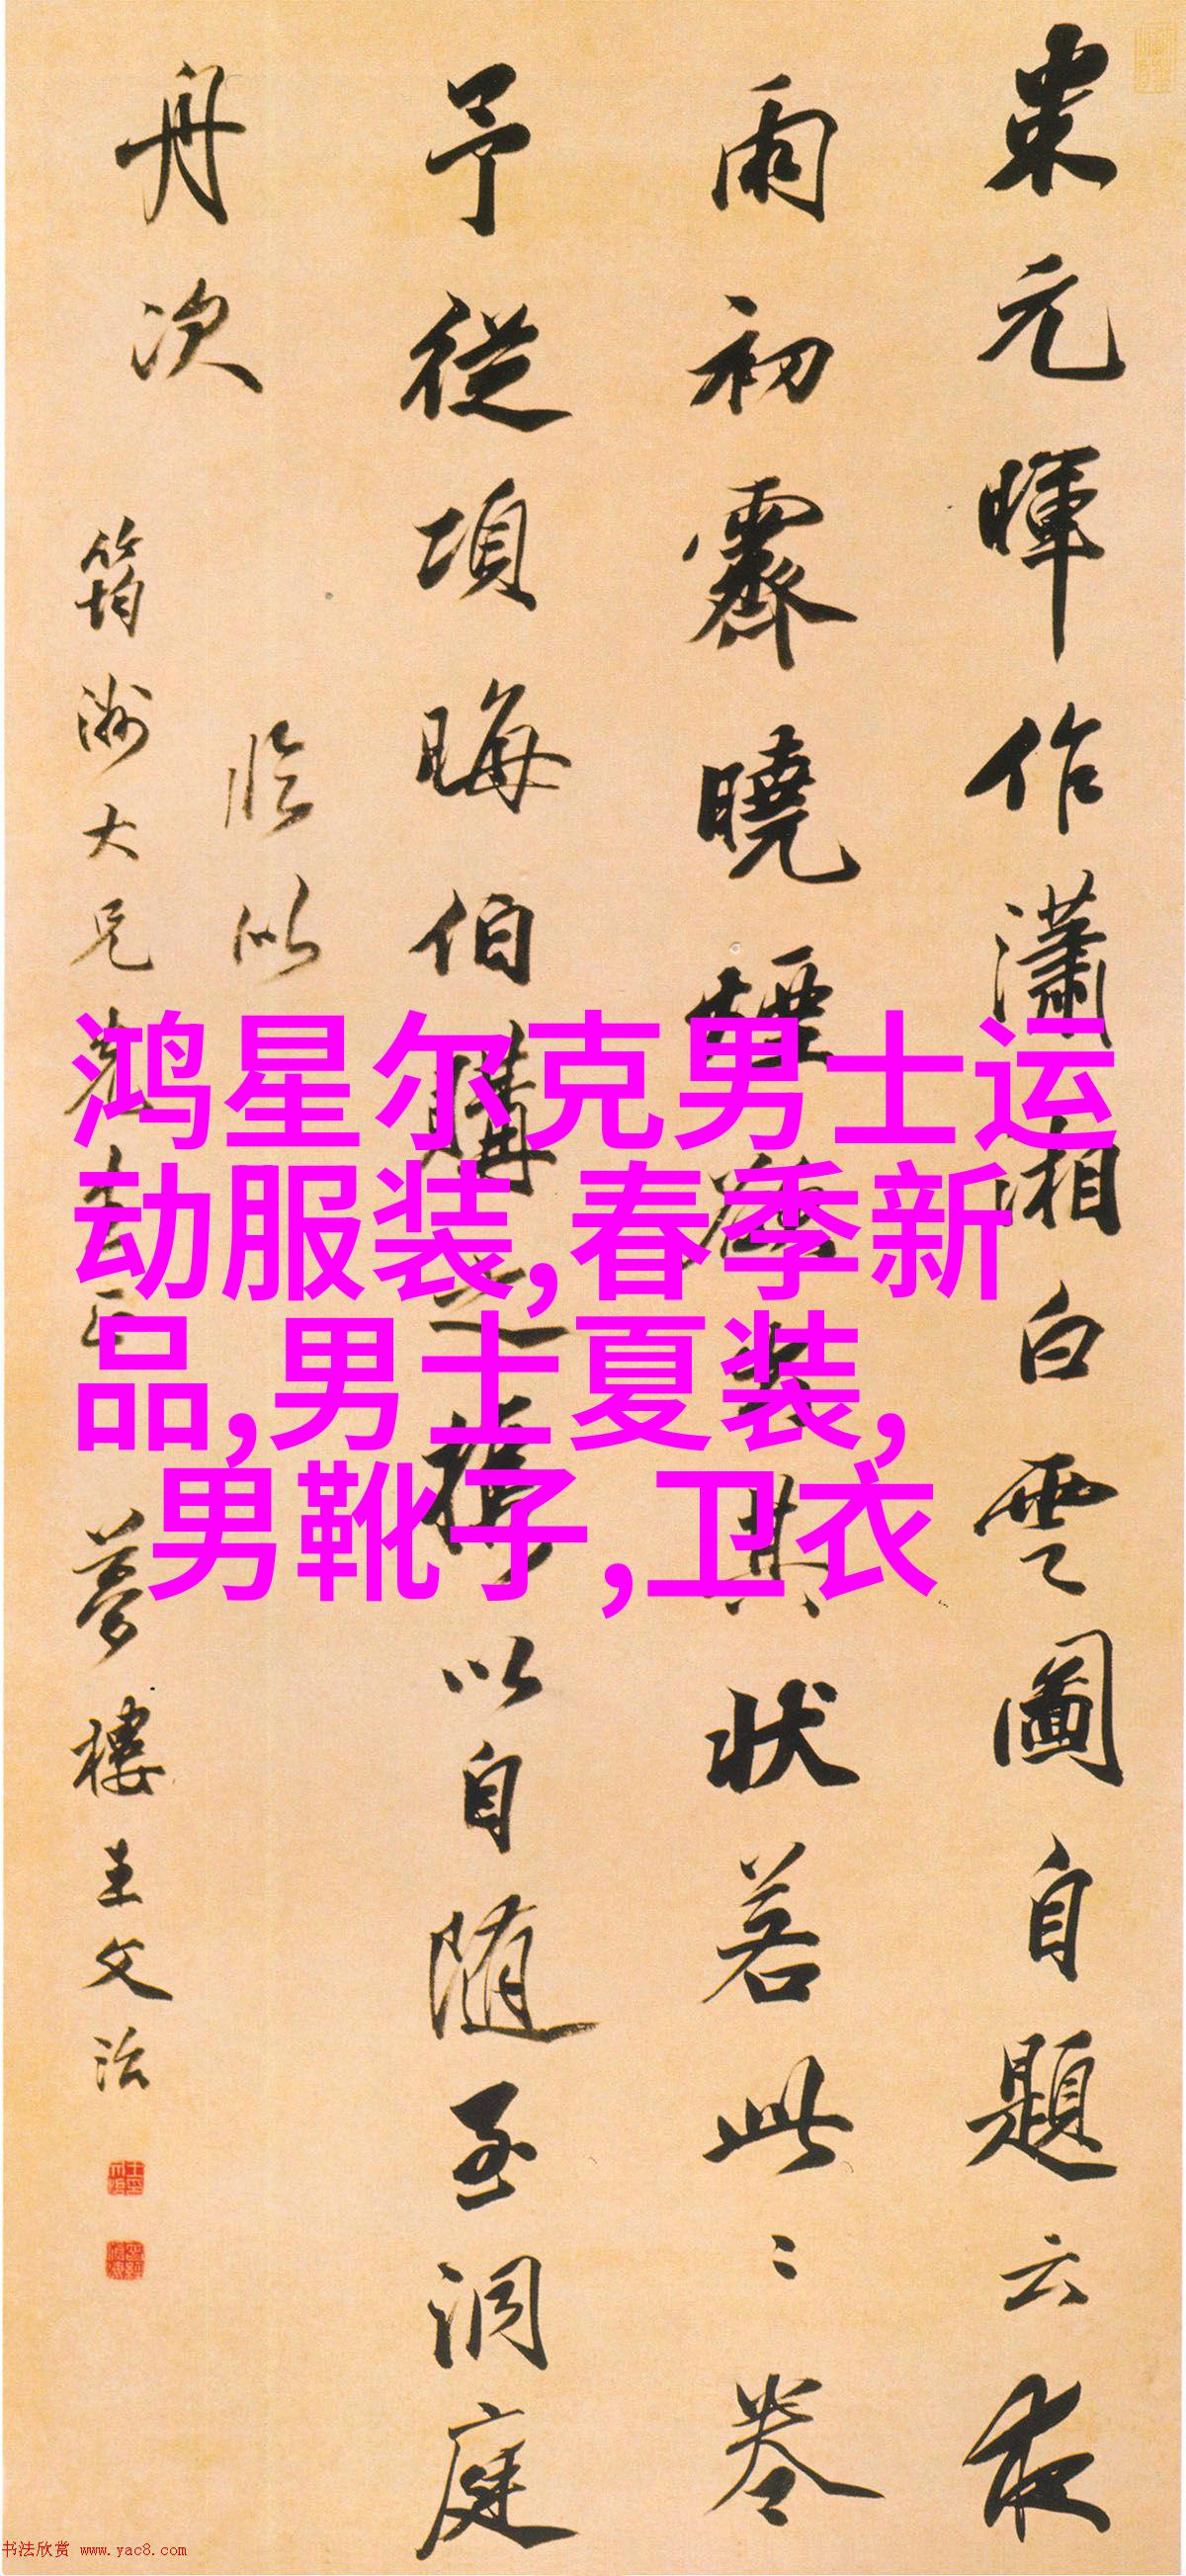 米元暉作瀟湘白雲圖自題云夜
雨初霽曉煙欲出其状若此〻卷
予從項晦伯購之攜以自随至洞庭
舟次
臨似
筠洲大兄
夢樓王文治
鸿星尔克男士运
动服装,春季新
品,男士夏装,
男靴子,卫衣
书法欣赏 www.yac8.com